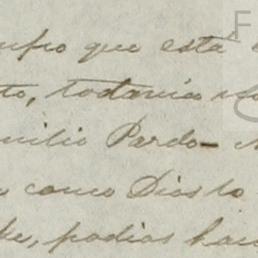 que esta
to, todavia
milio Pardo-
como Dios lo
podias hac